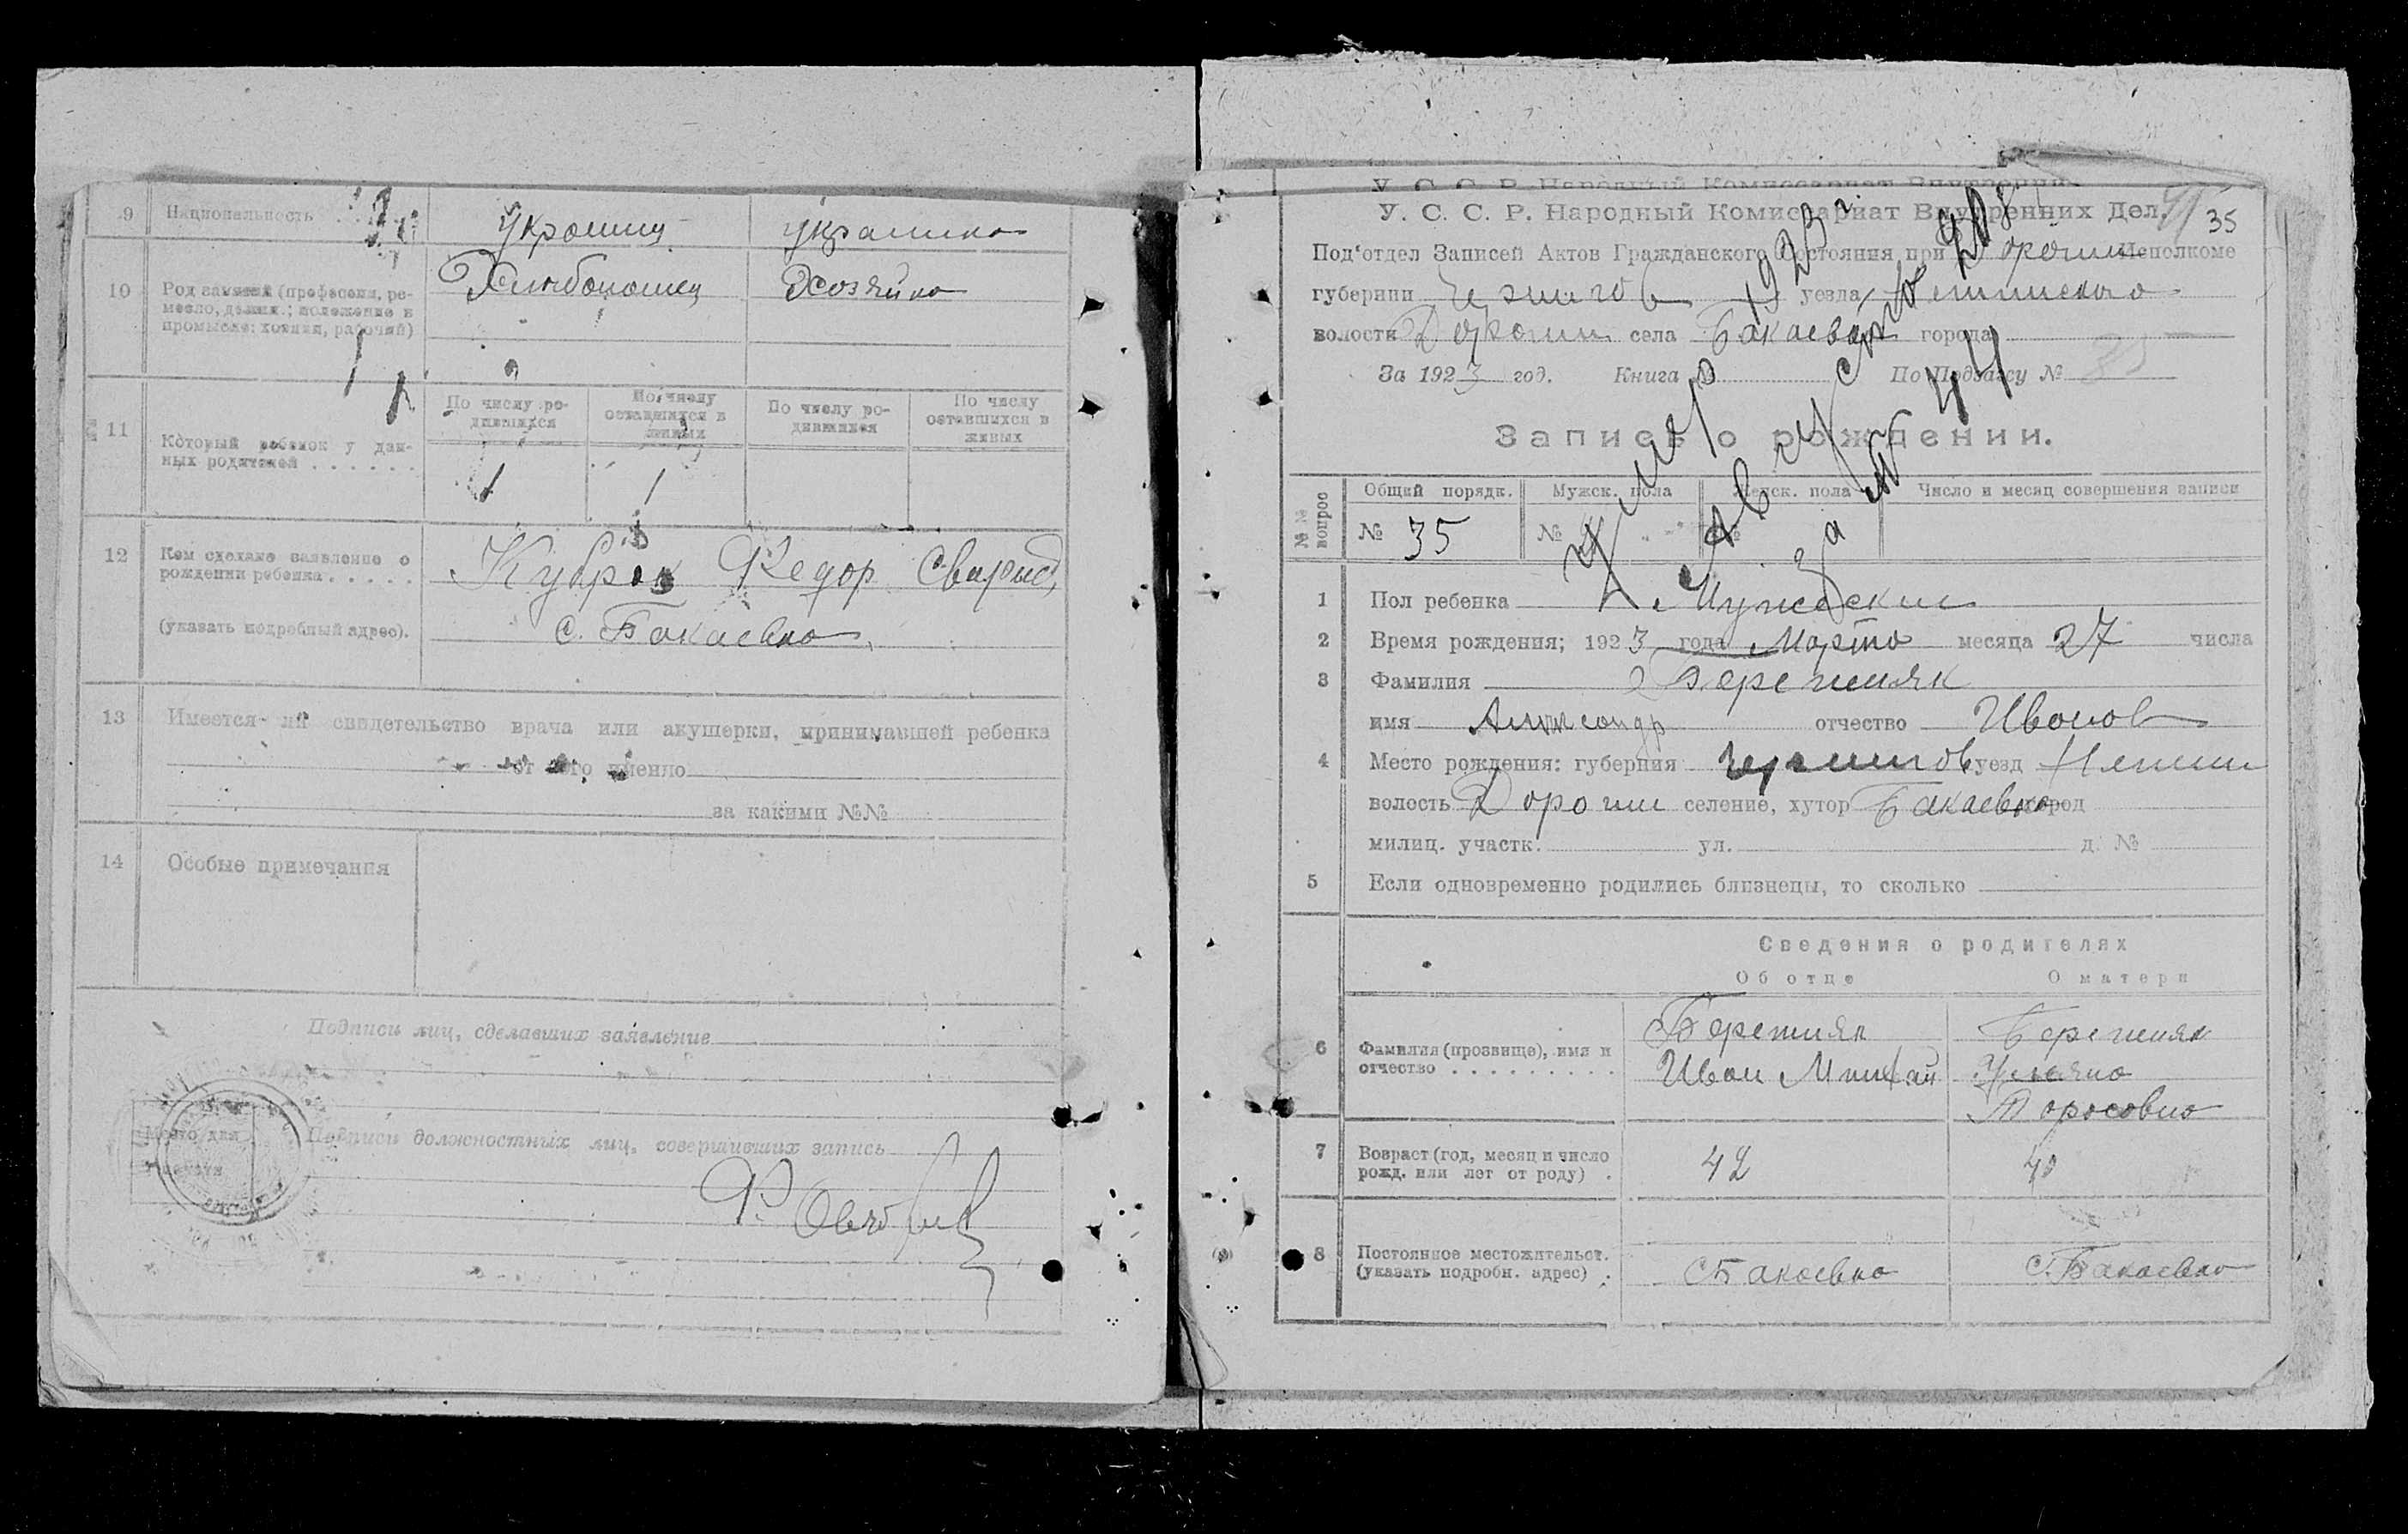 9 Национальность Украинц украинка
10 Род занятий (профессия, ре-
месло, должн.; положение в
промысле: хозяин, рабочий)
Хлибопашец Хозяйка
11 Который ребенок у дан-
ных родителей
По числу ро-
дившихся
По числу
оставшихся в
живых
По числу ро-
дившихся
По числу
оставшихся в
живых
1 1
12 Кем сделано заявление о
рождении ребенка
Федор
(указать подробный адрес).
с. Бакаевка
13 Имеется-ли свидетельство врача или акушерки, принимавшей ребенка
от кого именно
за какими №№
14 Особые примечания
Подписи лиц, сделавших заявление
Место для
печати
Подписи должностных лиц, совершивших запись
У. С. С. Р. Народный Комиссариат Внутренних Дел.
35
Под'отдел Записей Актов Гражданского Состояния при Исполкоме
губернии Чернигов уезда
волости села Бакаевка города
За 1923 год. Книга По Подзагсу №
Умер
1923 г.
Августа
за № 44
Запись о рождении.
№№ вопрос
Общий порядк. Мужск. пола Женск. пола Число и месяц совершения записи
№ 35 № №
1 Пол ребенка Мужеский
2 Время рождения; 1923 года Марта месяца 27 числа
3 Фамилия Бережняк
имя Александр отчество Иванов
4 Место рождения: губерния Чернигов уезд Нежин
волость Дорогин селение, хутор Бакаевка город
милиц. участк. ул. д. №
5 Если одновременно родились близнецы, то сколько
Сведения о родителях
Об отце О матери
6 Фамилия (прозвище), имя и
отчество
Бережняк
Иван Михай
Бережняк
Ульяна
Тарасовна
7 Возраст (год, месяц и число
рожд. или лет от роду)
42 40
8 Постоянное местожительст.
(указать подробн. адрес)
с Бакаевка с. Бакаевка